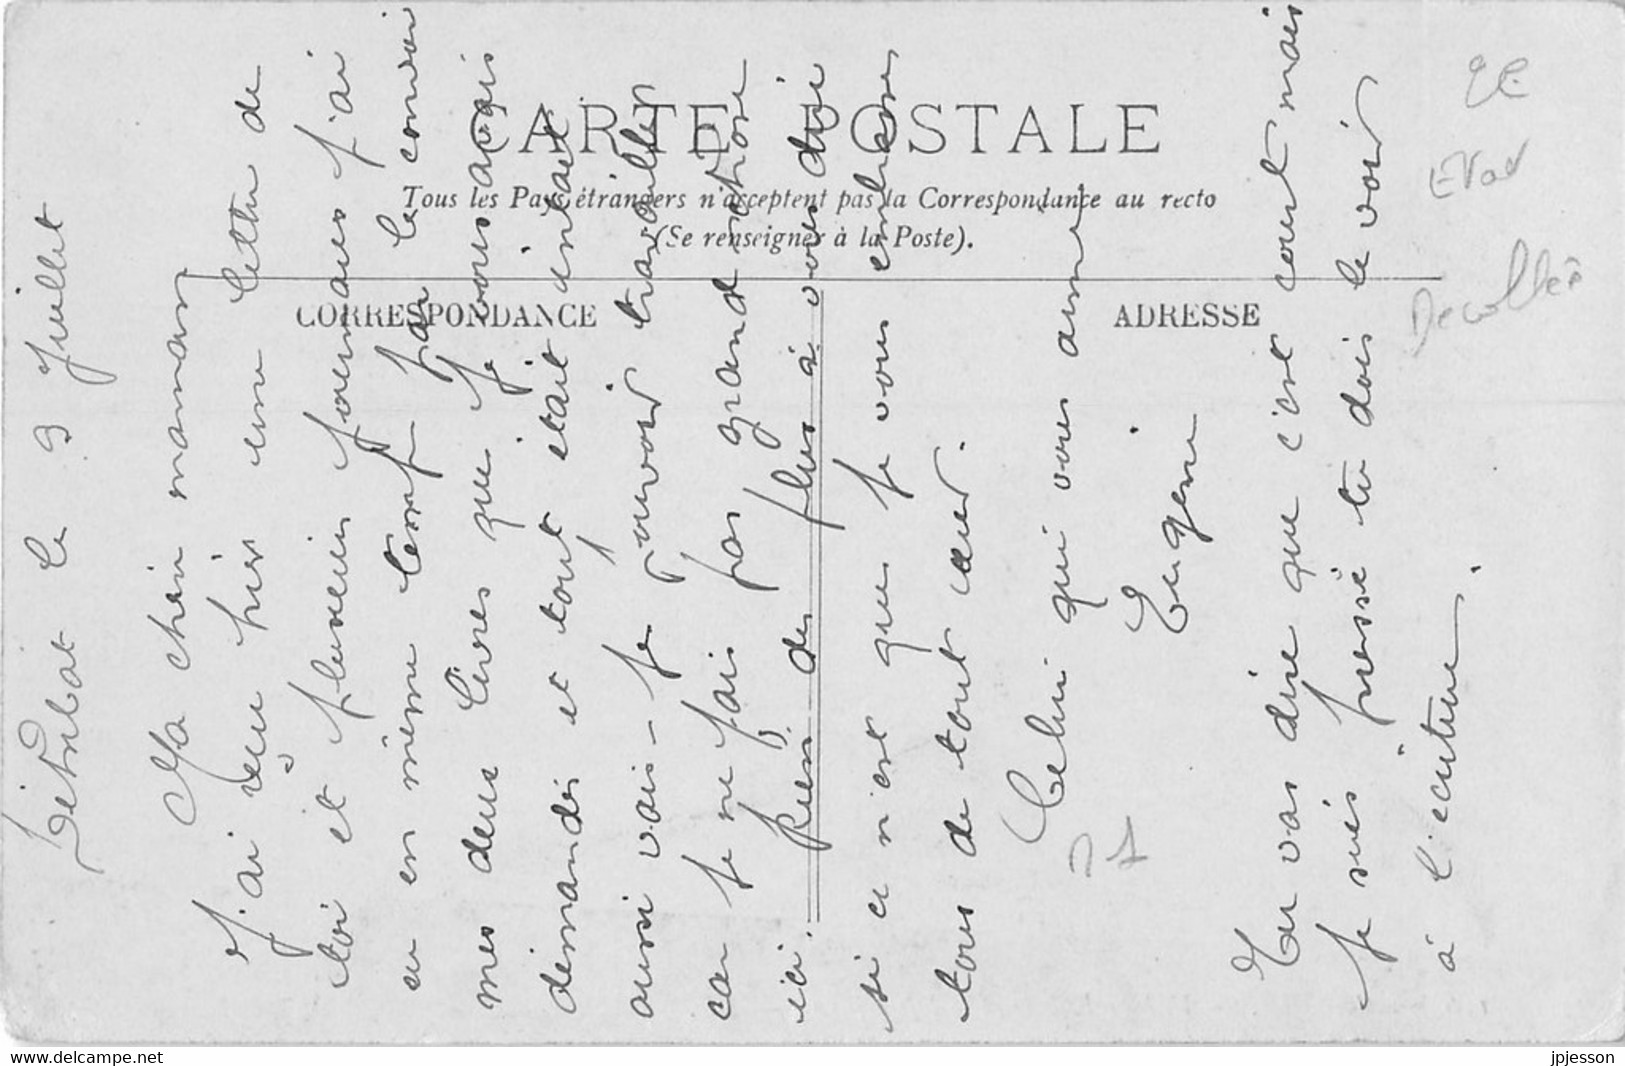 CARTE POSTALE
Tous les Pays étrangers n'acceptent pas la Correspondance au recto
(Se renseigner à la Poste).
CORRESPONDANCE
ADRESSE
le 9 Juillet
Ma chère maman
J'ai reçu hier une lettre de
toi et plusieurs journaux j'ai
eu en même temps par le convoi
mes deux livres que je vous avais
demandés et tout était intact
aussi vais-je pouvoir travailler
car je ne fais pas grand chose
ici. Rien de plus à vous dire
si ce n'est que je vous embrasse
tous de tout cœur.
Celui qui vous aime
Eugène
Tu vas dire que c'est court mais
je suis pressé tu dois le voir
à l'écriture.
EC
Decollée
delcampe.net
jpjesson